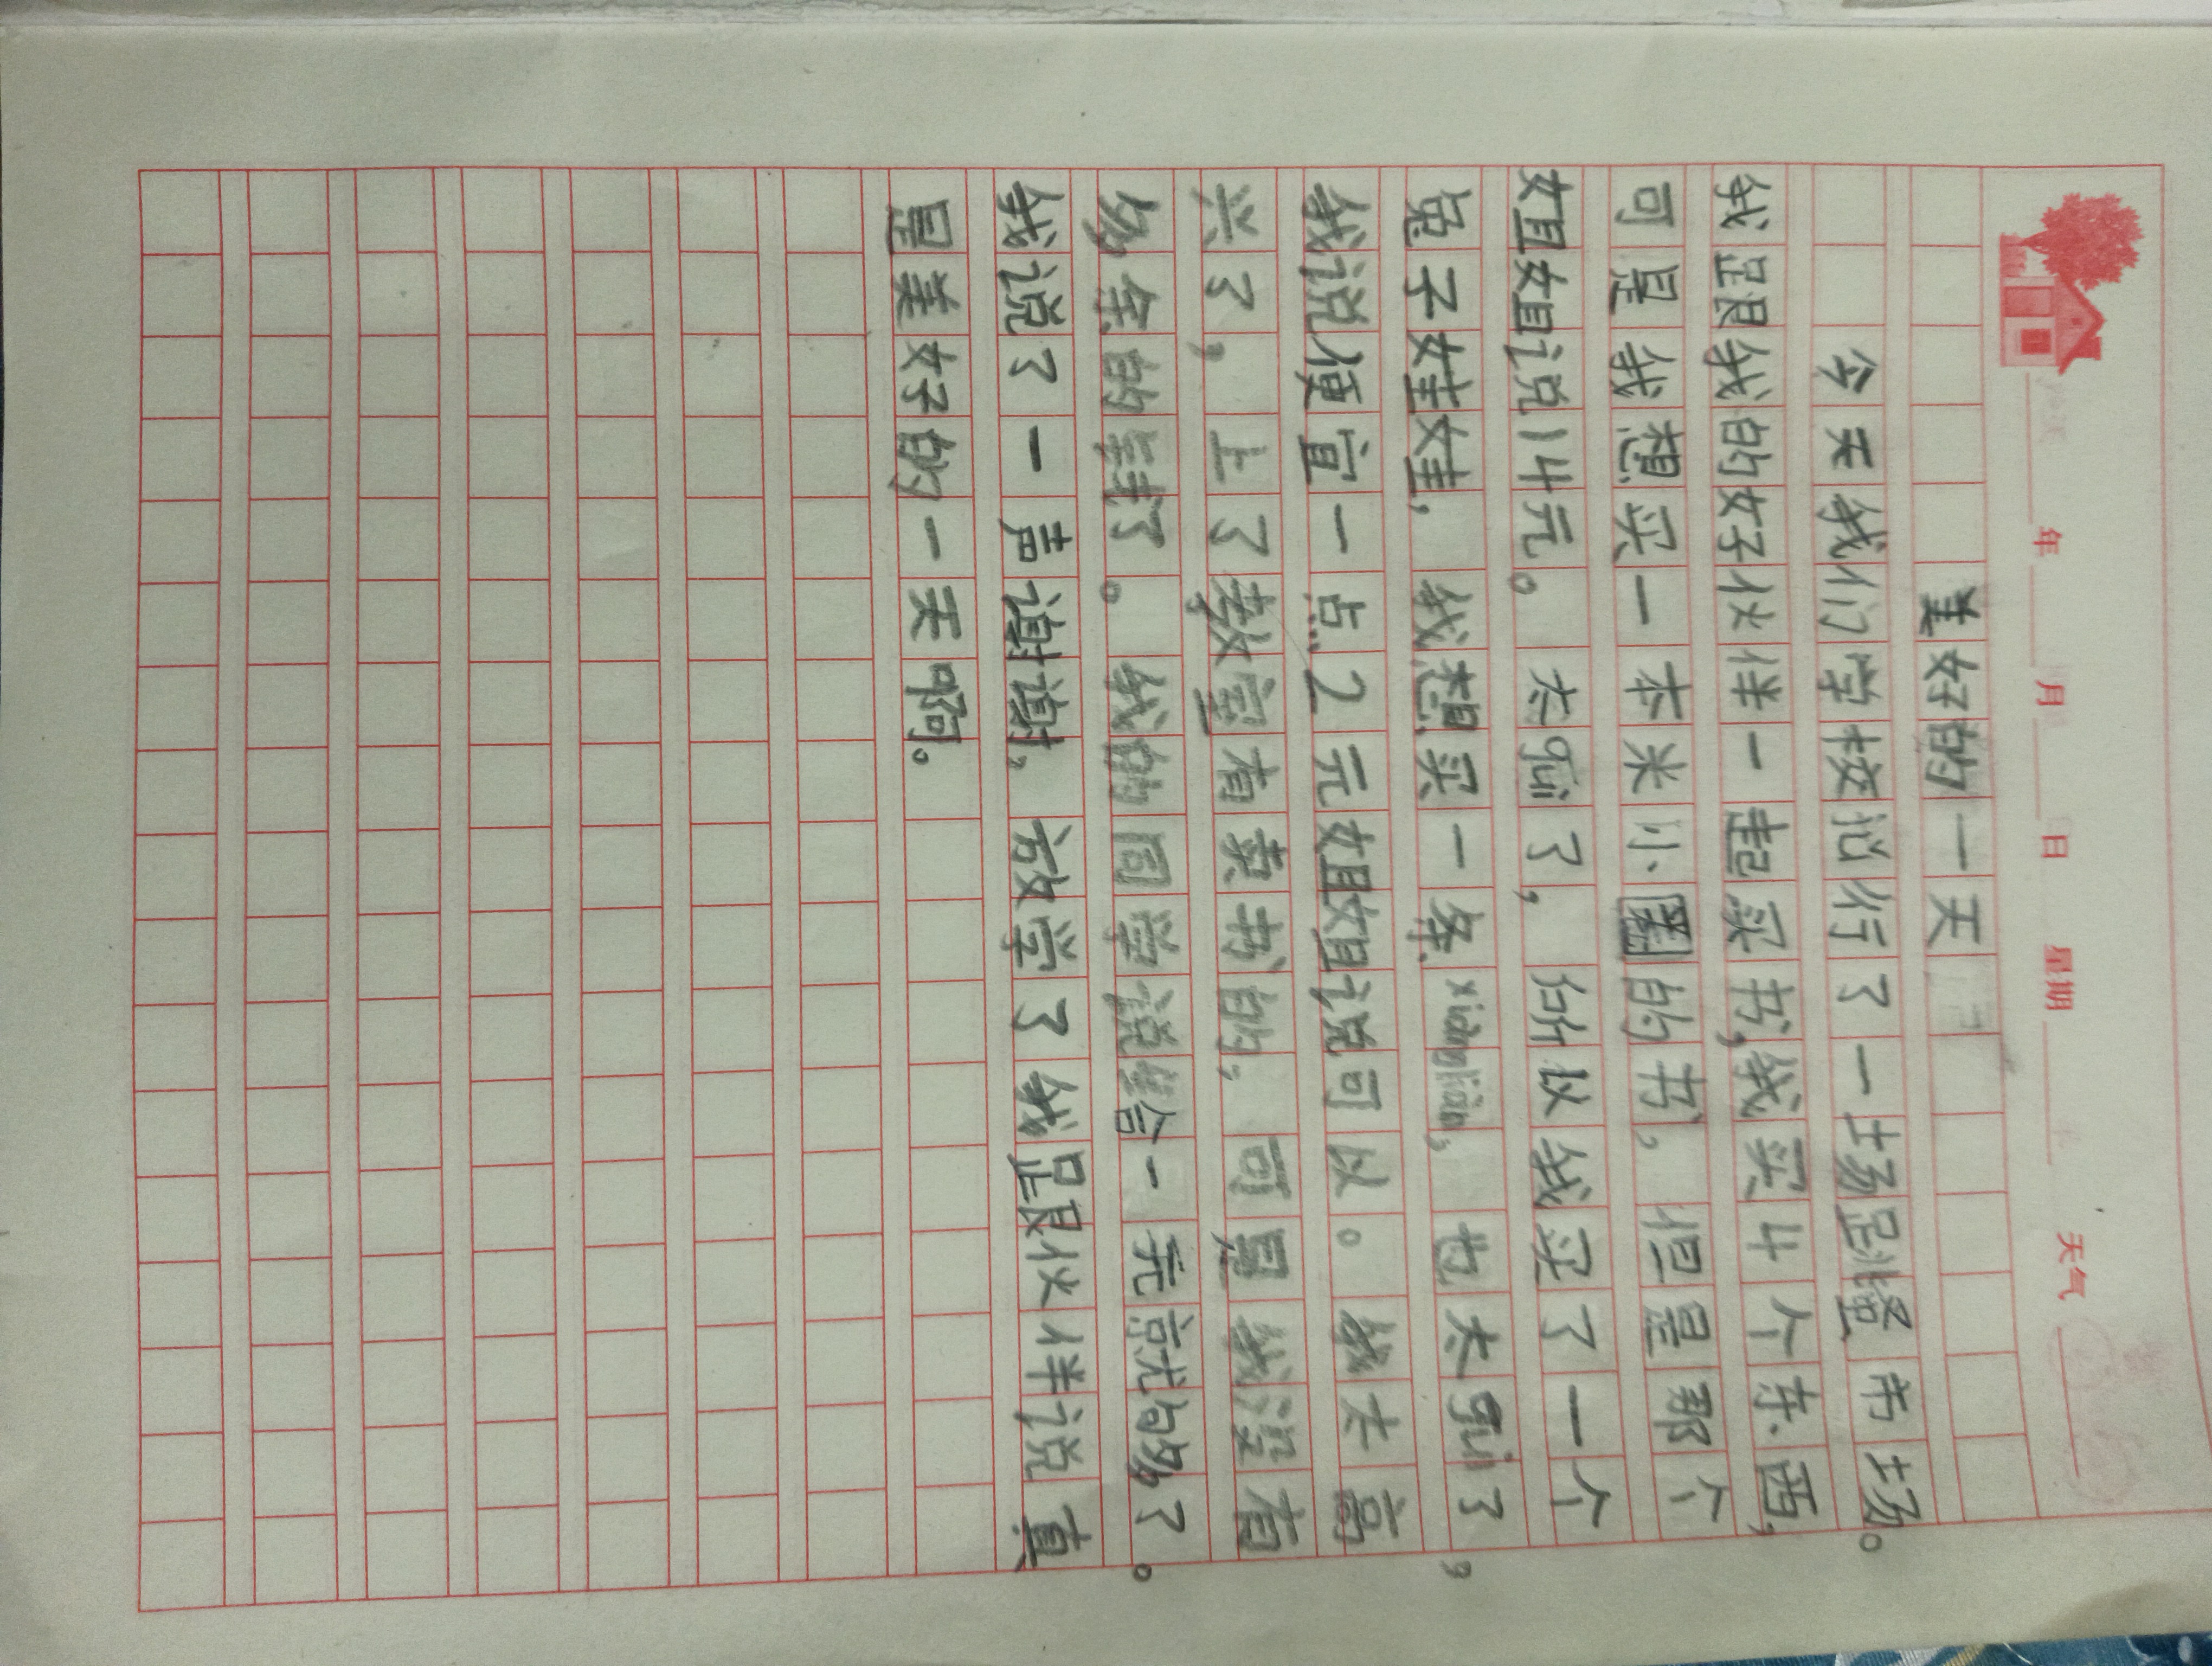 年 月 日 星期 天气
美好的一天
今天我们学校治行了一场跳蚤市场。
我跟我的好伙伴一起买书，我买4个东西，
可是我想买一本米小圈的书，但是那个
姐姐说14元。太gui了，价以我买了一个
兔子娃娃，我想买一条xianglian，也太gui了，
我说便宜一点…2元姐姐说可以。我太高
兴了，上了教室有卖书的，可是我没有
多余的钱了。我的同学说给一元就够了。
我说了一声谢谢，放学了我跟伙伴说真
是美好的一天啊。